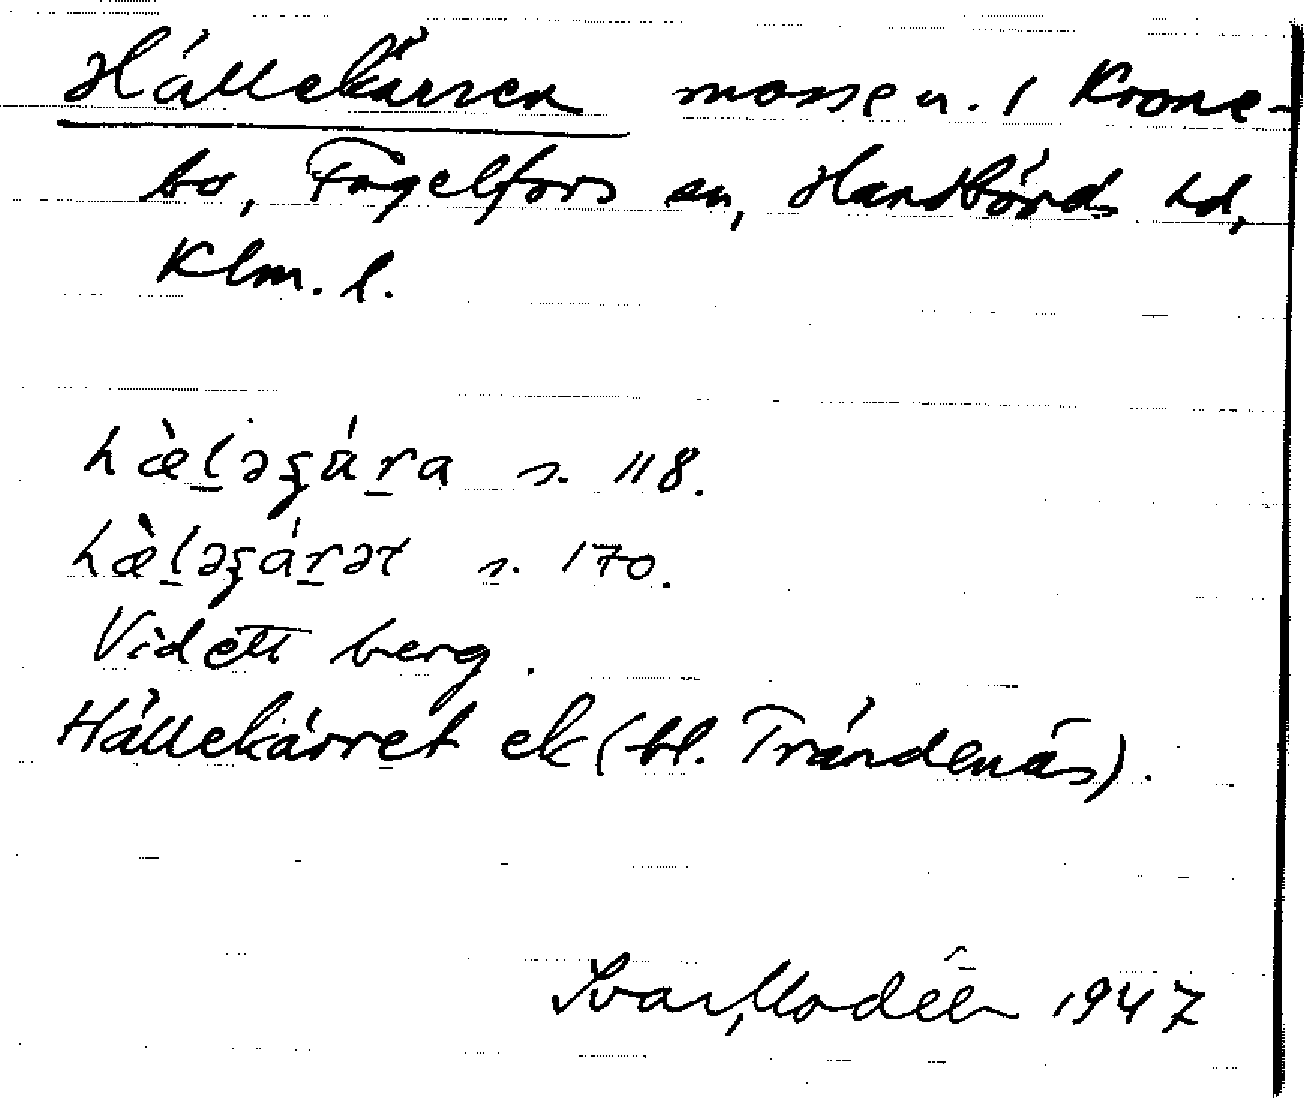 Hällekärren mosse n. i Krone-
bo, Fagelfors sn, Handbörds hd,
Klm. l.
hæ̀ḻəʓáṟa s. 118.
hæ̀ḻəʓáṟət s. 170.
Vidett berg.
Hällekärret ek (bl. Trändenäs).
Ivar Modéer 1947